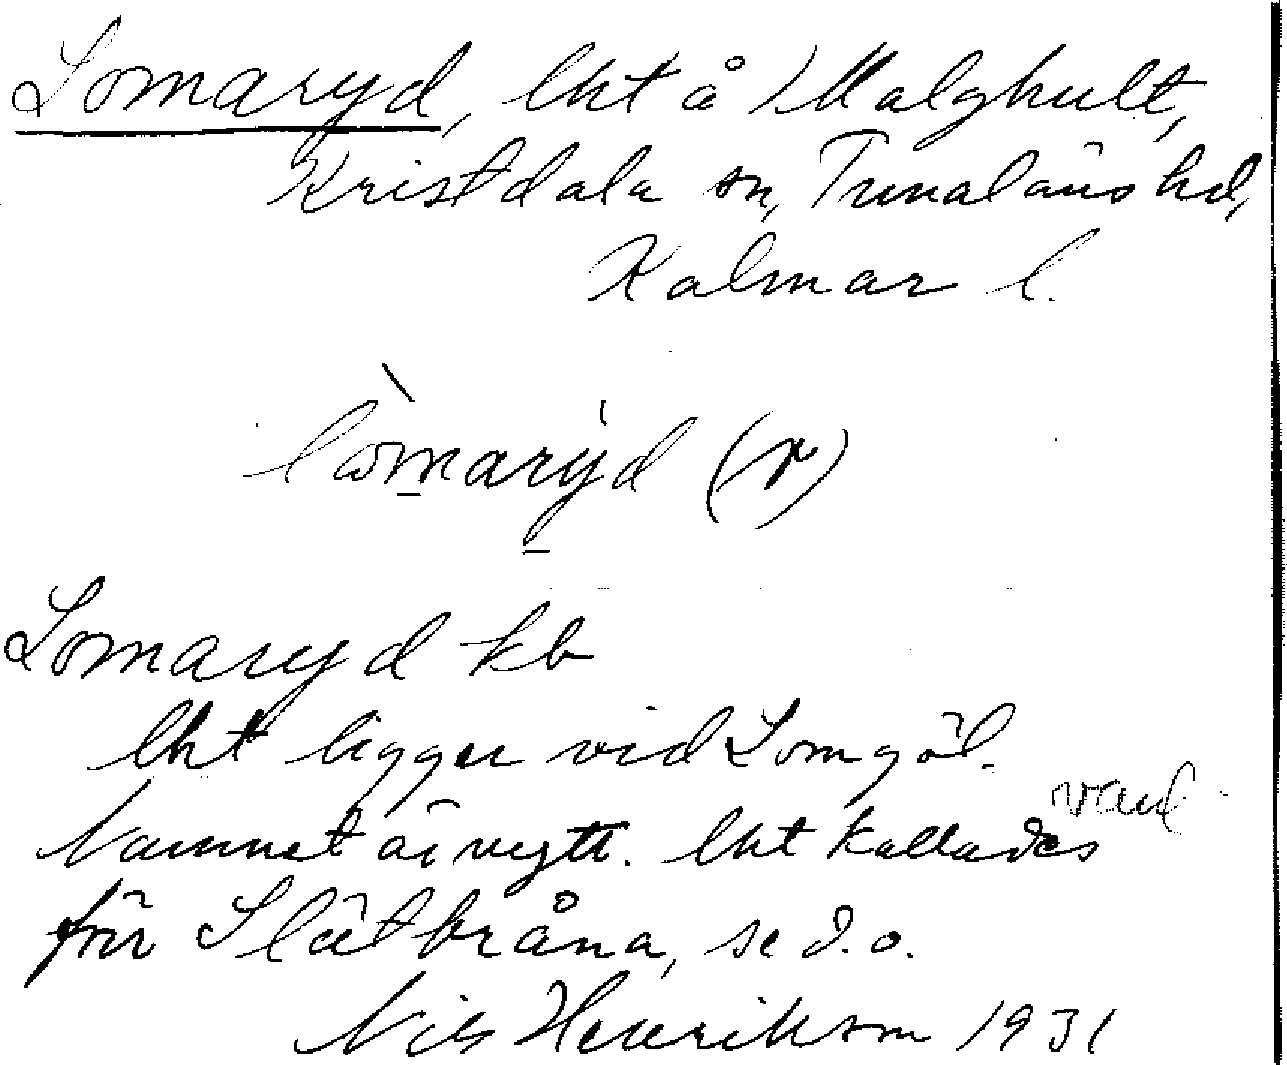 Lomaryd, lht å Malghult,
Kristdala sn, Tunaläns hd,
Kalmar l.
lòmarýd (r)
Lomaryd kb
lht ligger vid Lomgöl.
Namnet är nytt. lht kallades vanl.
förr Slätbråna, se d.o.
Nils Henrikson 1931